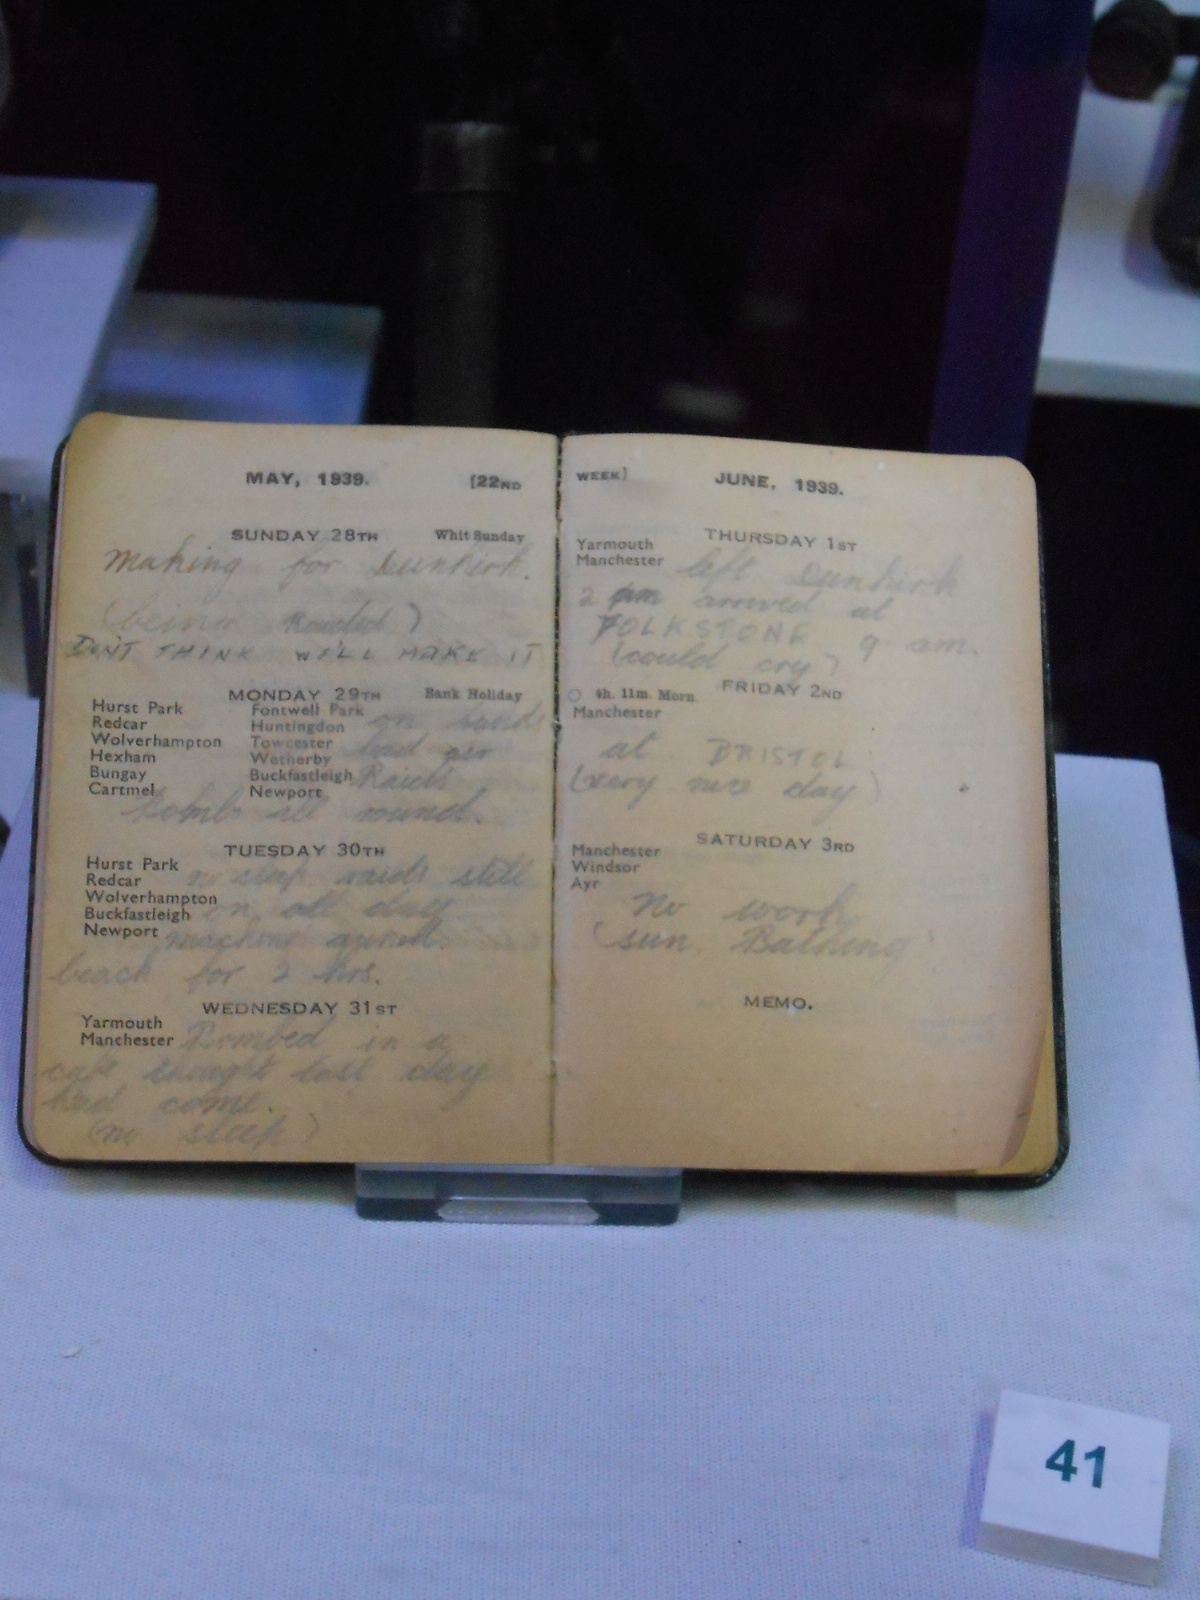 MAY, 1939. [22ND
SUNDAY 28TH Whit Sunday
Making for Dunkirk.
(being Raided)
DON'T THINK WE'LL MAKE IT
MONDAY 29TH Bank Holiday
Hurst Park Fontwell Park
Redcar Huntingdon on sands
Wolverhampton Towcester bad air
Hexham Wetherby
Bungay Buckfastleigh Raids
Cartmel Newport
Bombs all round.
TUESDAY 30TH
Hurst Park
Redcar no sleep raids still
Wolverhampton
Buckfastleigh on all day
Newport machine gunned
beach for 2 hrs.
WEDNESDAY 31ST
Yarmouth
Manchester Bombed in a
cafe thought last day
had come.
(no sleep)
WEEK] JUNE, 1939.
THURSDAY 1ST
Yarmouth
Manchester left Dunkirk
2 am arrived at
FOLKSTONE 9 am.
(could cry)
FRIDAY 2ND
4h. 11m. Morn.
Manchester
at BRISTOL
(very nice day)
SATURDAY 3RD
Manchester
Windsor
Ayr
No work
(sun Bathing)
MEMO.
41